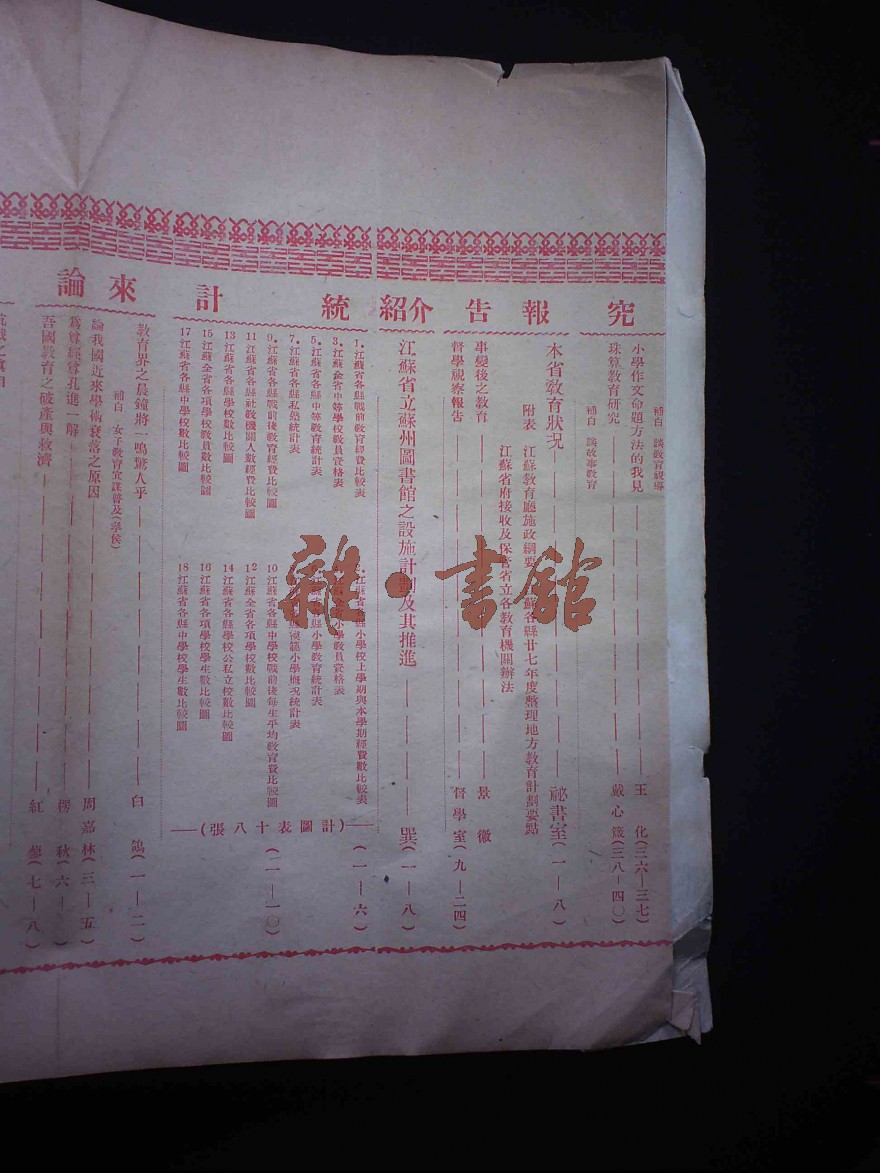 究
補白 談教育視導
小學作文命題方法的我見 王化(三六—三七)
珠算教育研究 戴心箴(三八—四〇)
補白 談故事教育
報告
本省教育狀況 祕書室(一—八)
附表 江蘇教育廳施政綱要 蘇各縣廿七年度整理地方教育計劃要點
江蘇省府接收及保管省立各教育機關辦法
事變後之教育 景徽
督學視察報告 督學室(九—二四)
介紹
江蘇省立蘇州圖書館之設施計劃及其推進 巽(一—八)
統計
(計圖表十八張)
1.江蘇省各縣戰前教育經費比較表
2.江蘇省 小學校上學期與本學期經費數比較表 (一—六)
3.江蘇全省中等學校教員資格表
小學教員資格表
5.江蘇省各縣中等教育統計表
縣小學教育統計表
7.江蘇省各縣私塾統計表
小學概況統計表
9.江蘇省各縣戰前後教育經費比較圖
10江蘇省各縣中學校戰前後每生平均教育費比較圖 (一—一〇)
11江蘇省各縣社教機關人數經費比較圖
12江蘇全省各項學校數比較圖
13江蘇省各縣學校數比較圖
14江蘇省各縣學校公私立校數比較圖
15江蘇全省各項學校教員數比較圖
16江蘇省各項學校學生數比較圖
17江蘇省各縣中學校數比較圖
18江蘇省各縣中學校學生數比較圖
來論
教育界之晨鐘將一鳴驚人乎 白鴿(一—二)
補白 女子教育宜謀普及(學侯)
論我國近來學術衰落之原因 周嘉林(三—五)
爲尊經尊孔進一解 楞秋(六—)
吾國教育之破產與救濟 紅蓼(七—八)
雜·書館